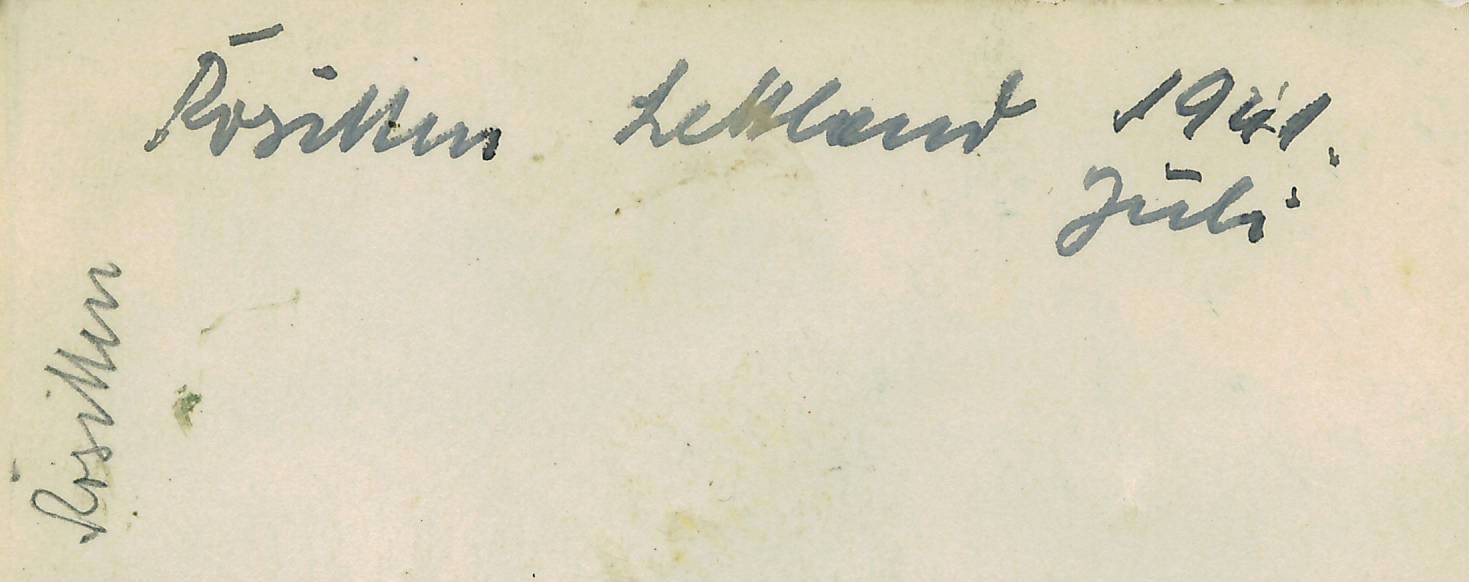 Rositten Lettland 1941.
Juli
Rositten